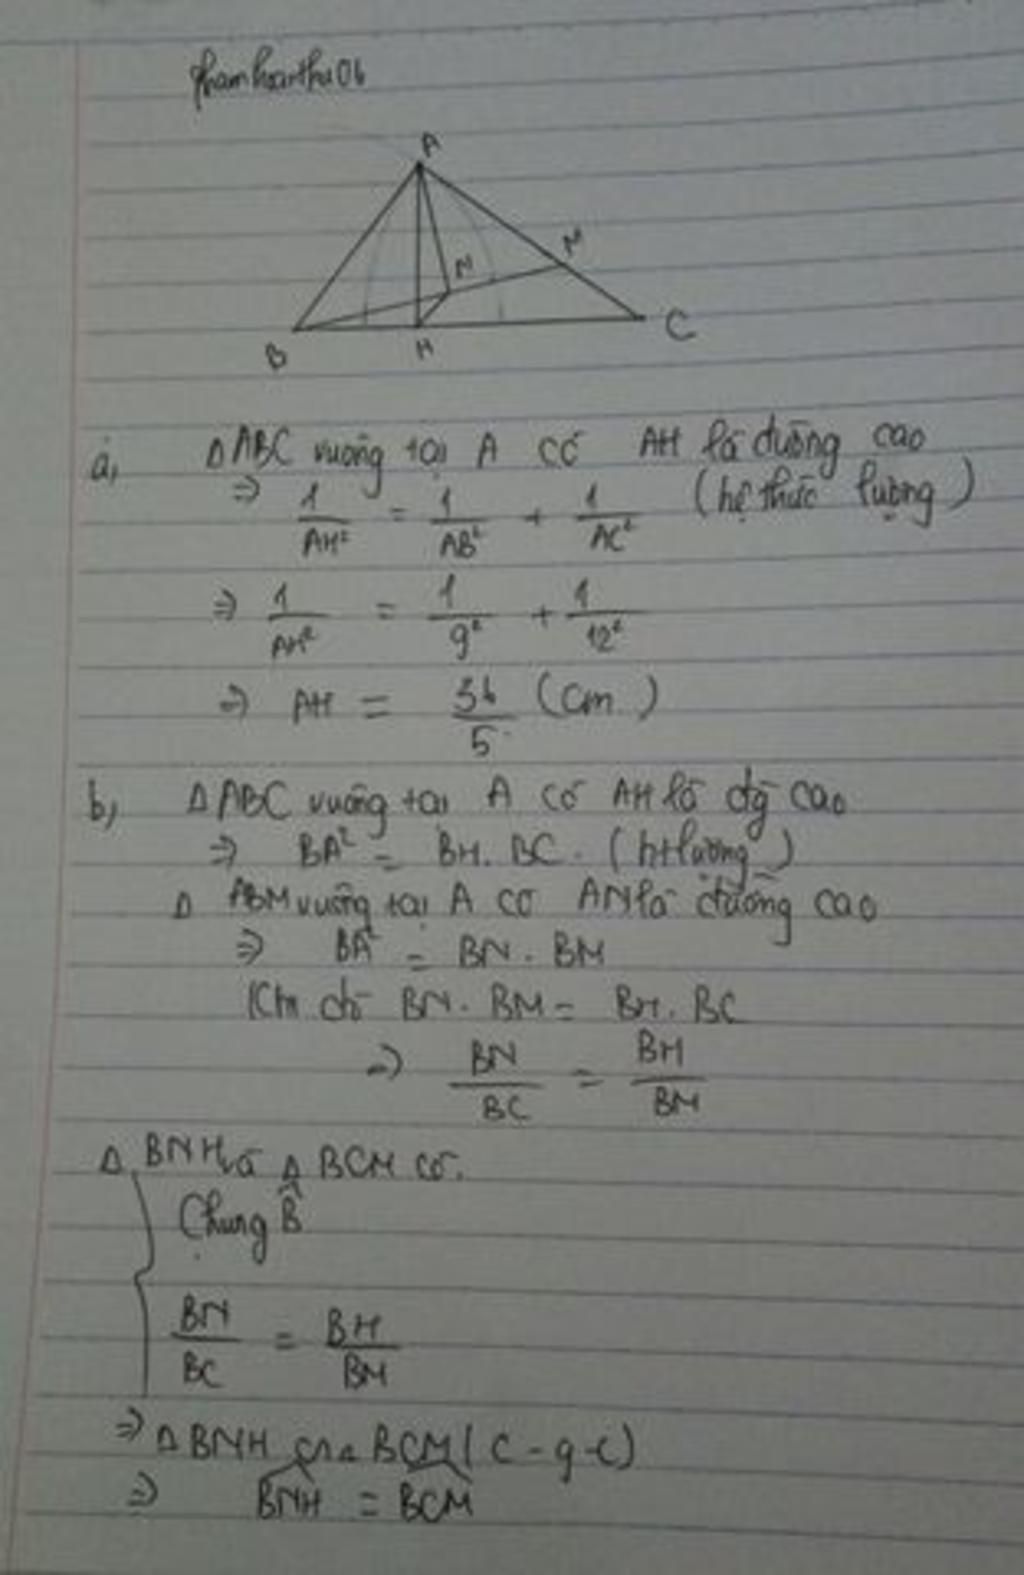 phamhoanthu06
A
M
N
B
H
C
a, ΔABC vuông tại A có AH là đường cao
⇒ 1/AH² = 1/AB² + 1/AC² (hệ thức lượng)
⇒ 1/AH² = 1/9² + 1/12²
⇒ AH = 36/5 (cm)
b, ΔABC vuông tại A có AH là đg cao
⇒ BA² = BH. BC. (htlượng)
Δ ABM vuông tại A có AN là đường cao
⇒ BA² = BN. BM
BN. BM = BH. BC
⇒ BN/BC = BH/BM
Δ BNH và Δ BCM có.
Chung B̂
BN/BC = BH/BM
⇒ ΔBNH ∽ Δ BCM (c-g-c)
⇒ BNH = BCM